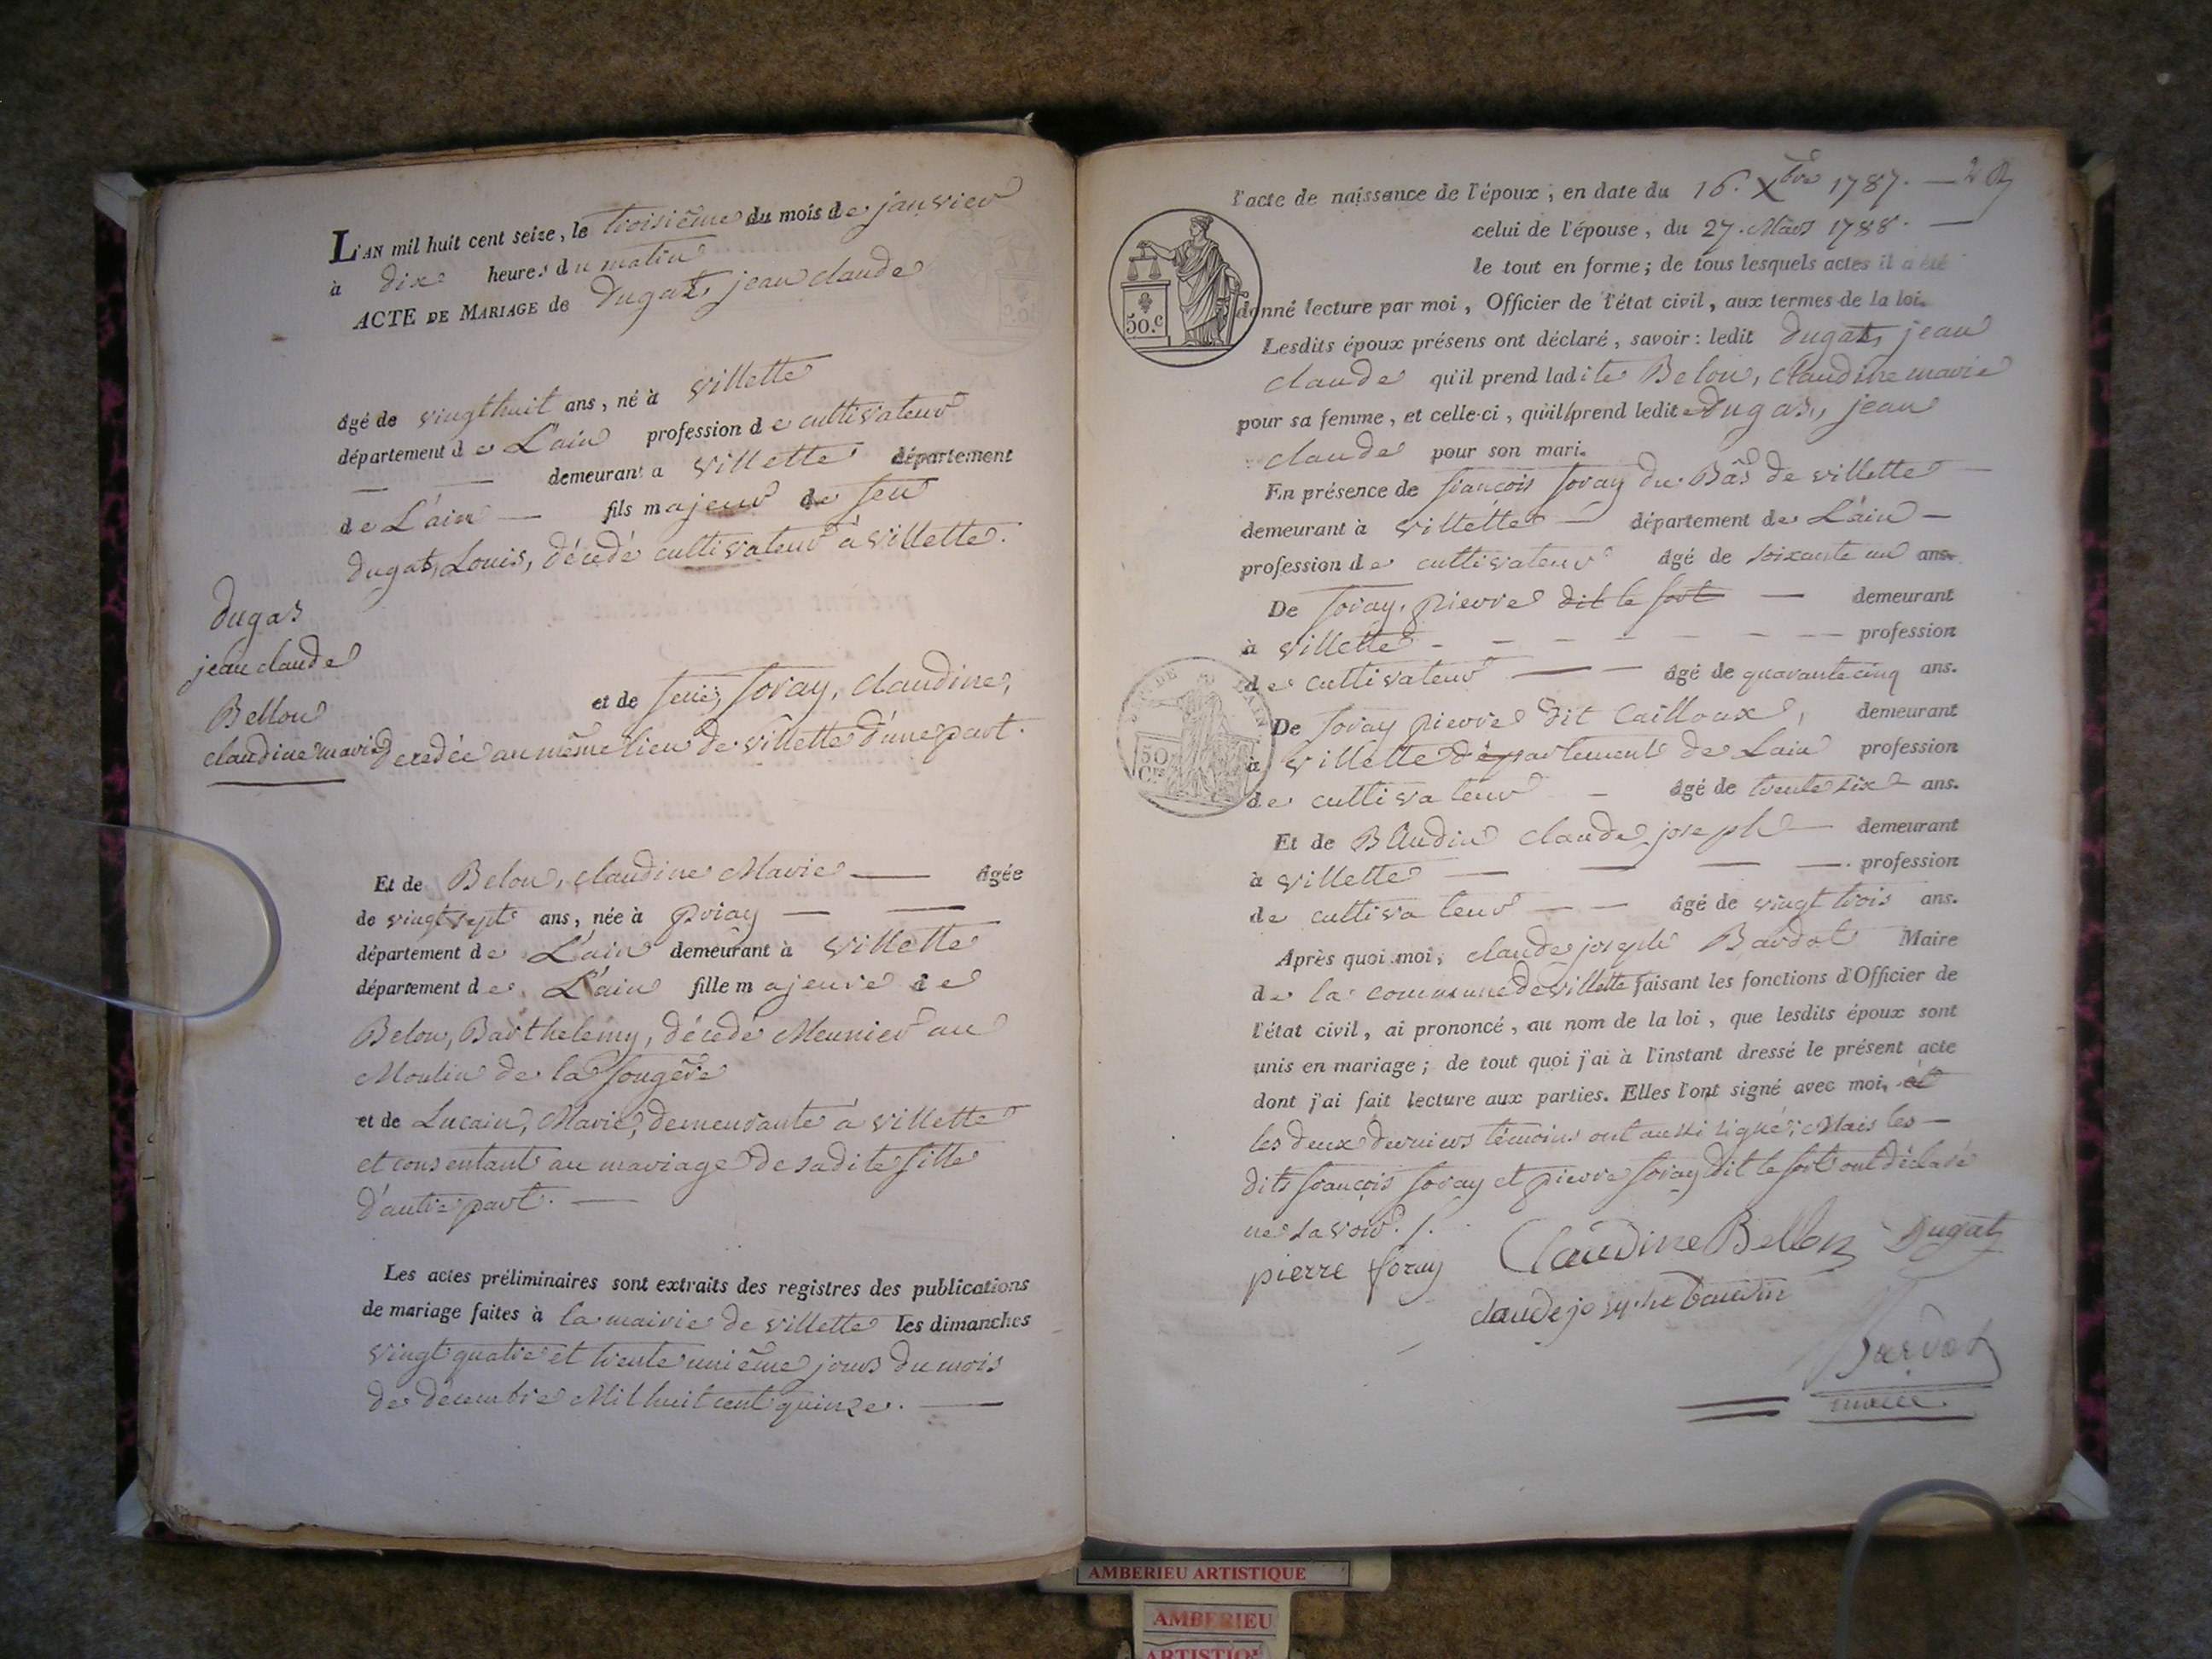 L'AN mil huit cent seize, le troisième du mois de janvier
à dix heures du matin
ACTE DE MARIAGE de Dugas, jean claude
âgé de vingt huit ans, né à villette
département de L'ain profession de cultivateur
demeurant a villette département
de L'ain — fils majeur de feu
Dugas, Louis, décedé cultivateur à villette.
Dugas
jean claude
Bellon
claudine marie
et de feue, foray, claudine,
decedée au même lieu de villette d'une part.
Et de Belon, claudine Marie — âgée
de vingt sept ans, née à priay —
département de L'ain demeurant à villette
département de L'ain fille majeure de
Belon, Barthelemy, décedé Meunier au
Moulin de la fougère
et de Lucain, Marie, demeurante à villette
et consentante au mariage de sadite fille
d'autre part. —
Les actes préliminaires sont extraits des registres des publications
de mariage faites à la mairie de villette les dimanches
vingt quatre et trente unième jours du mois
de decembre Mil huit cent quinze. —
l'acte de naissance de l'époux, en date du 16. Xbre 1787. —
celui de l'épouse, du 27. Mars 1788. —
le tout en forme; de tous lesquels actes il a été
50.c
donné lecture par moi, Officier de l'état civil, aux termes de la loi.
Lesdits époux présens ont déclaré, savoir: ledit Dugas, jean
claude qu'il prend ladite Belon, claudine marie
pour sa femme, et celle-ci, qu'il prend ledit Dugas, jean
claude pour son mari.
En présence de françois foray du Bas de villette
demeurant à villette — département de L'ain —
profession de cultivateur âgé de soixante un ans.
De foray, pierre dit le fort — demeurant
à villette - — profession
de cultivateur — âgé de quarante cinq ans.
De foray pierre dit Cailloux, demeurant
à villette département de Lain profession
50
de cultivateur - âgé de trente six ans.
Et de BAudin claude joseph — demeurant
à villette — profession
de cultivateur — âgé de vingt trois ans.
Après quoi moi, claude joseph Bardot Maire
de la commune de villette faisant les fonctions d'Officier de
l'état civil, ai prononcé, au nom de la loi, que lesdits époux sont
unis en mariage; de tout quoi j'ai à l'instant dressé le présent acte
dont j'ai fait lecture aux parties. Elles l'ont signé avec moi, et
les deux derniers témoins ont aussi signé; Mais les —
dits françois foray et pierre foray dit le fort ont déclaré
ne savoir./.
pierre foray Claudine Bellon Dugas
claude josephe baudin
Bardot
maire
AMBERIEU ARTISTIQUE
AMBERIEU
ARTISTIQUE